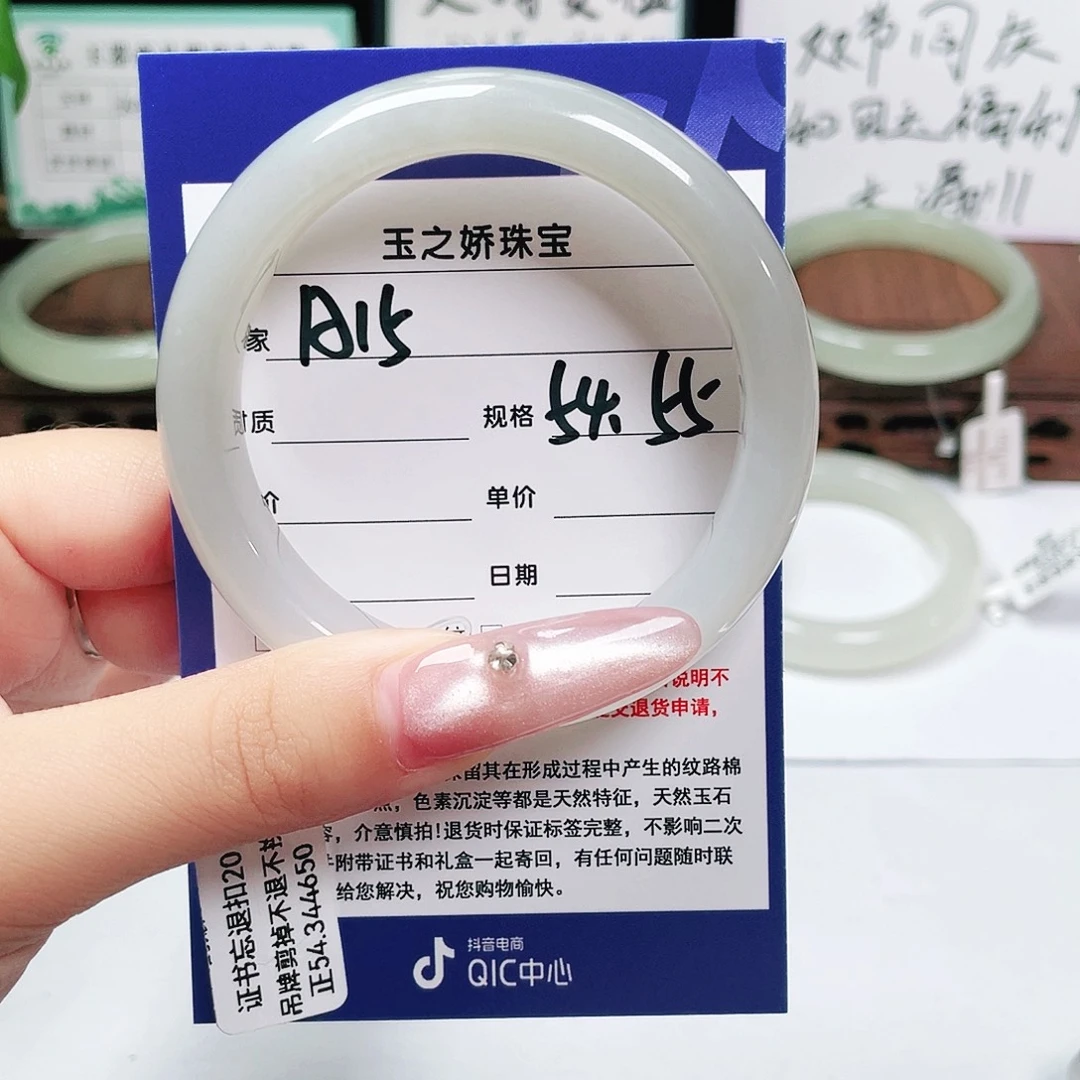 双节同庆
和田玉福利
玉之娇珠宝
家 A15
材质
规格 54.55
价
单价
日期
说明不
退货申请,
留其在形成过程中产生的纹路棉
点，色素沉淀等都是天然特征，天然玉石
，介意慎拍!退货时保证标签完整，不影响二次
附带证书和礼盒一起寄回，有任何问题随时联
给您解决，祝您购物愉快。
证书忘退扣20
吊牌剪掉不退不
正54.344650
抖音电商
QIC中心